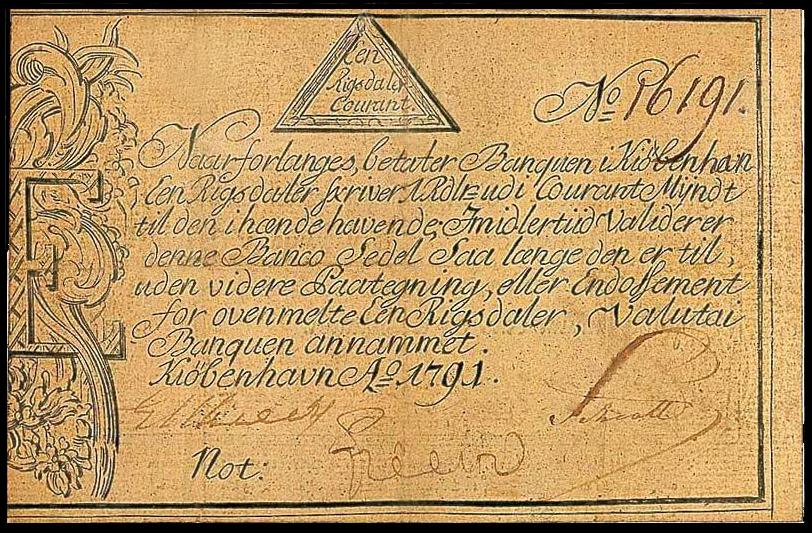 Een
Rigsdaler
Courant.
No 16191.
Naar forlanges, betaler Banquen i Kiøbenhavn
Een Rigsdaler skriver 1 Rdlr udi Courant Myndt
til den i hænde havende; Imidlertiid Validerer
denne Banco Sedel Saa længe den er til,
uden videre Paategning, eller Endossement
for ovenmelte Een Rigsdaler, Valuta i
Banquen annammet.
Kiøbenhavn Ao. 1791.
Not: